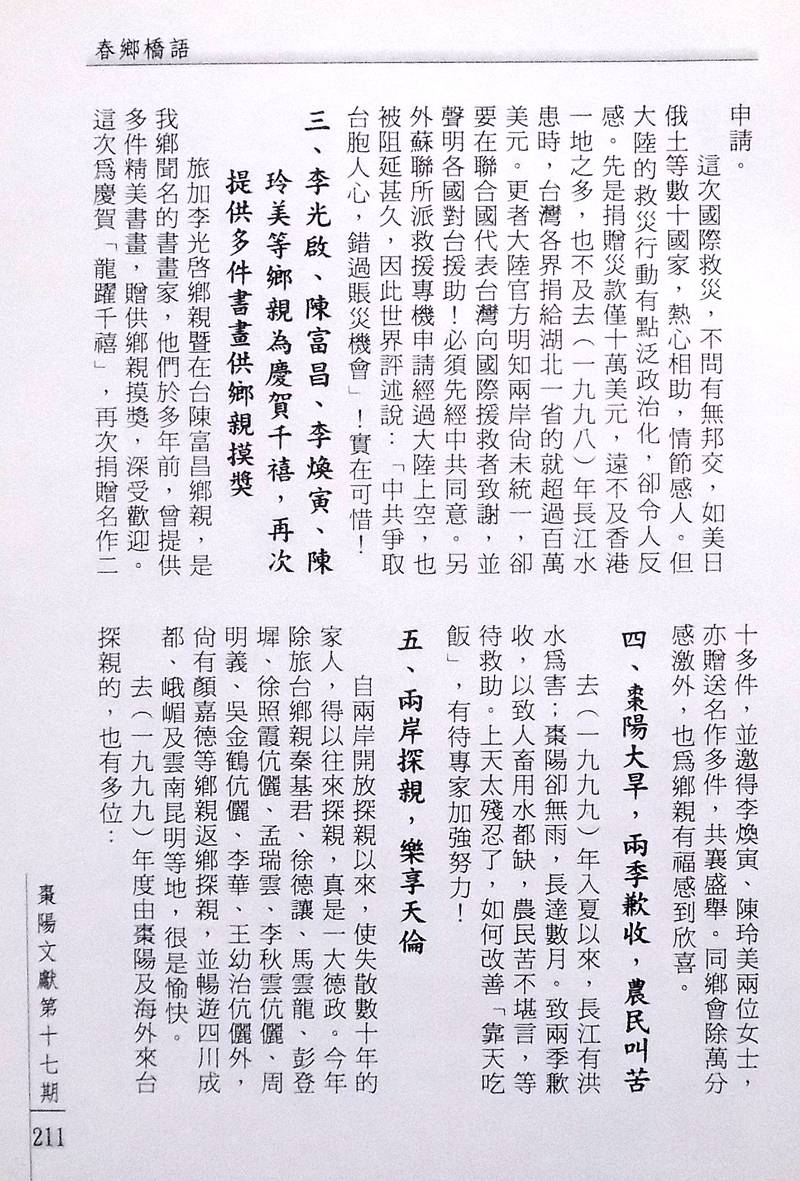 春鄉橋語
申請。
這次國際救災，不問有無邦交，如美日
俄土等數十國家，熱心相助，情節感人。但
大陸的救災行動有點泛政治化，卻令人反
感。先是捐贈災款僅十萬美元，遠不及香港
一地之多，也不及去（一九九八）年長江水
患時，台灣各界捐給湖北一省的就超過百萬
美元。更者大陸官方明知兩岸尚未統一，卻
要在聯合國代表台灣向國際援救者致謝，並
聲明各國對台援助！必須先經中共同意。另
外蘇聯所派救援專機申請經過大陸上空，也
被阻延甚久，因此世界評述說：「中共爭取
台胞人心，錯過賬災機會」！實在可惜！
三、李光啟、陳富昌、李煥寅、陳
玲美等鄉親為慶賀千禧，再次
提供多件書畫供鄉親摸獎
旅加李光啓鄉親暨在台陳富昌鄉親，是
我鄉聞名的書畫家，他們於多年前，曾提供
多件精美書畫，贈供鄉親摸獎，深受歡迎。
這次爲慶賀「龍躍千禧」，再次捐贈名作二
十多件，並邀得李煥寅、陳玲美兩位女士，
亦贈送名作多件，共襄盛舉。同鄉會除萬分
感激外，也爲鄉親有福感到欣喜。
四、棗陽大旱，兩季歉收，農民叫苦
去（一九九九）年入夏以來，長江有洪
水爲害；棗陽卻無雨，長達數月。致兩季歉
收，以致人畜用水都缺，農民苦不堪言，等
待救助。上天太殘忍了，如何改善「靠天吃
飯」，有待專家加強努力！
五、兩岸探親，樂享天倫
自兩岸開放探親以來，使失散數十年的
家人，得以往來探親，真是一大德政。今年
除旅台鄉親秦基君、徐德讓、馬雲龍、彭登
墀、徐照霞伉儷、孟瑞雲、李秋雲伉儷、周
明義、吳金鶴伉儷、李華、王幼治伉儷外，
尚有顏嘉德等鄉親返鄉探親，並暢遊四川成
都、峨嵋及雲南昆明等地，很是愉快。
去（一九九九）年度由棗陽及海外來台
探親的，也有多位：
棗陽文獻第十七期
211